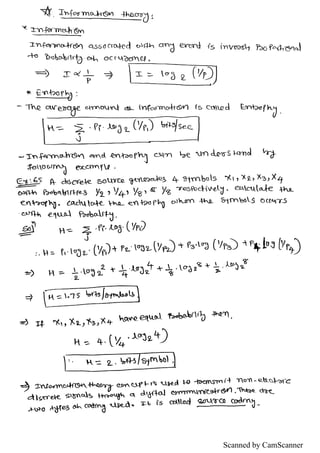 ☆. Information theory:
* Information
Information associated with any event is inversly Propotional
to Probability of occurance.
⇒ I ∝ 1/P ⇒ I = log₂ (1/P)
* Entrophy:
- The average amount of Information is called Entrophy.
H = Σ Pi. log₂ (1/Pi) bits/sec
j
- Information and entrophy can be understand by
following example.
Ex: 65 A discrete source generates 4 symbols x1, x2, x3, x4
with Probabilities 1/2, 1/4, 1/8, & 1/8 respectively. calculate the
entrophy. calculate the entrophy when the symbols occurs
with equal Probality.
Sol) H = Σ Pi. log. (1/Pi)
j
∴ H = P1. log₂. (1/P1) + P2. log₂ (1/P2) + P3. log (1/P3) + P4 log (1/P4)
⇒ H = 1/2. log₂ 2 + 1/4. log₂ 4 + 1/8. log₂ 8 + 1/8. log₂ 8
⇒ H = 1.75 bits/symbols.
⇒ If x1, x2, x3, x4 have equal Probability then.
H = 4. (1/4. log₂ 4)
∴ H = 2. bits/symbol.
⇒ Information theory concept is used to transmit non-electric
discrete signals through a digital communication. There are
two types of coding used. It is called source coding.
Scanned by CamScanner